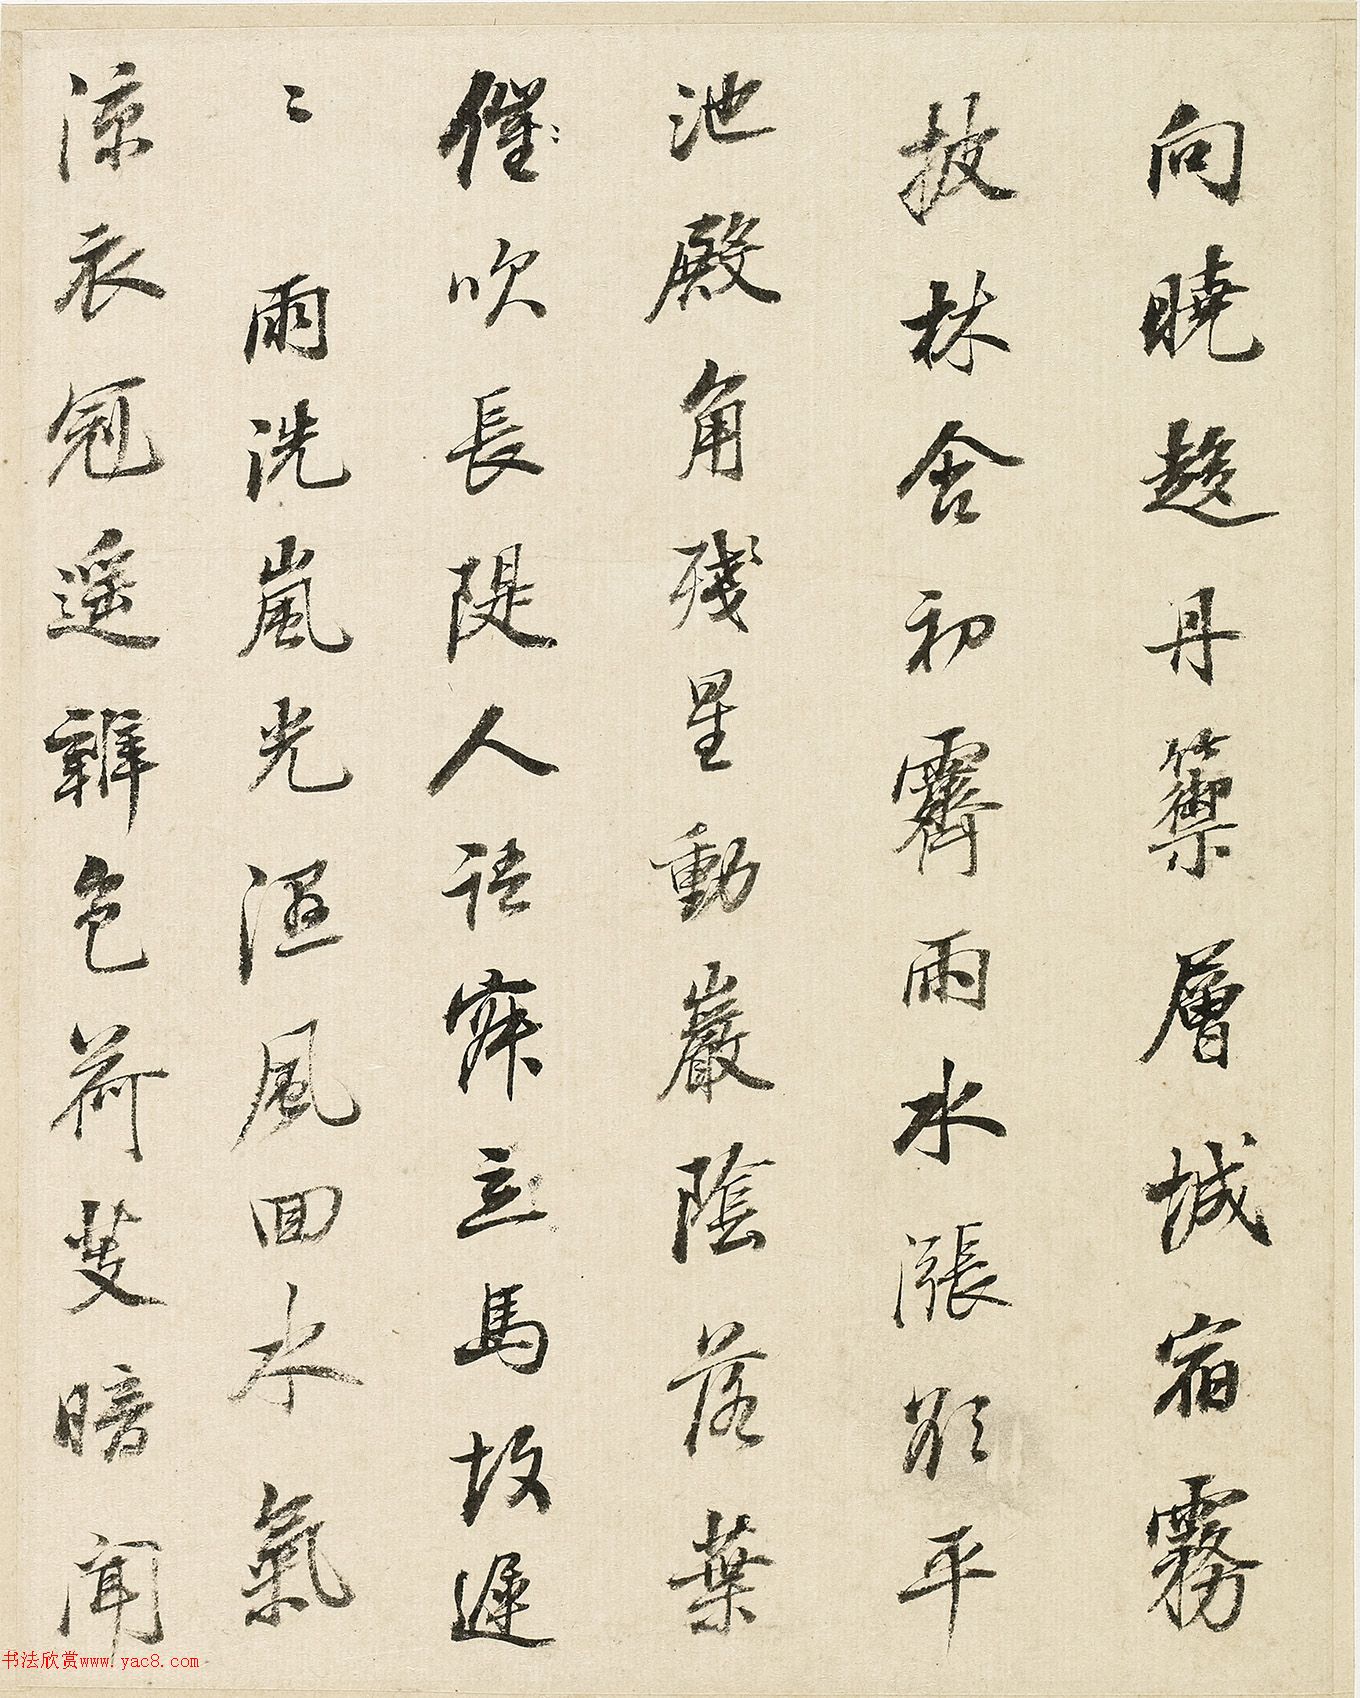 向曉趨丹籞層城宿霧
披林舍初霽雨水漲欲平
池殿角殘星動巖陰落葉
催吹長隄人語寂立馬故遲
〻雨洗嵐光濕風回水氣
涼衣冠遙辨色荷芰暗聞
书法欣赏www.yac8.com